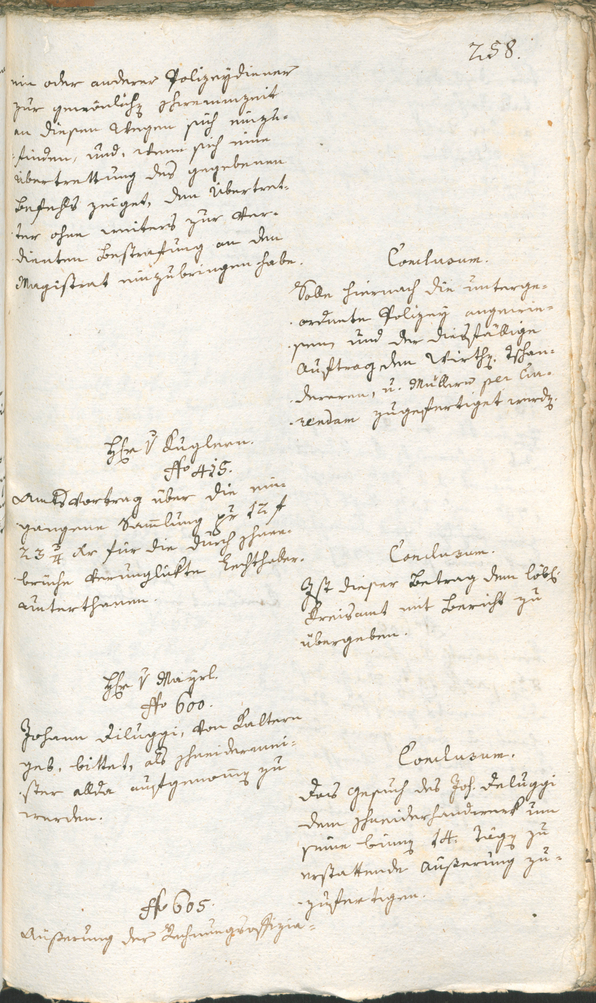 258.
ein oder anderer Polizeydiener
zur gewönlichen
an diesen Wegen sich einzu-
finden, und, wenn sich eine
übertrettung des gegebenen
Befehls zeiget, den Übertret-
ter ohne weiters zur ver-
dienten Bestrafung an den
Magistrat einzubringen habe.
Conclusum.
Solle hiernach die unterge-
ordnete Polizey angewie-
sen und der diesfällige
Auftrag den Wirthen, Tschan-
dereren, u. Müllern per Cur-
rendam zugefertiget werden.
Hr v Kuglern.
No 415.
Amtsvortrag über die ein-
gangene Sammlung pr 12 f
23 3/4 xr für die durch
brüche verunglükte Lechthaler-
unterthanen.
Conclusum.
Ist dieser Betrag dem löbl.
Kreisamt mit Bericht zu
übergeben.
Hr v Mayrl.
No 600.
Johann Deluggi, von Kaltern
geb. bittet, als Schneidermei-
ster allda aufgenomen zu
werden.
Conclusum.
Das Gesuch des Joh. Deluggi
dem Schneiderhandwerk um
seine binnen 14. Tägen zu
erstattende Äußerung zu-
zufertigen.
No 605.
Äußerung der Rechnungsoffizia-